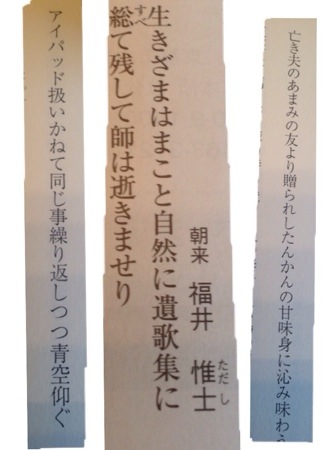 亡き夫のあまみの友より贈られしたんかんの甘味身に沁み味わう
朝来 福井 惟士
ただし
生きざまはまこと自然に遺歌集に
総て残して師は逝きませり
すべ
アイパッド扱いかねて同じ事繰り返しつつ青空仰ぐ